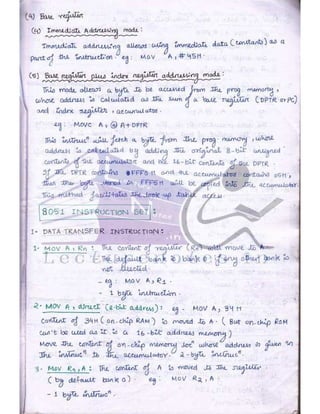 (4) Base register
(4) Immediate Addressing mode :
Immediate addressing allows using immediate data (constants) as a
part of the instruction eg : MOV A, #45H.
(5) Base register plus index register addressing mode :
This mode allows a byte to be accessed from the prog memory,
whose address is calculated as the sum of a base register (DPTR or PC)
and index register, accumulator.
eg : MOVC A, @ A+DPTR
This instruc^n will fetch a byte from the prog memory, whose
address is calculated by adding the original 8-bit unsigned
contents of the accumulator and the 16-bit contents of the DPTR.
If the DPTR contains FFF0H and the accumulator contains 05H,
then the byte stored in FFF5H will be copied into the accumulator.
This method facilitates the look up table access
8051 INSTRUCTION SET :
1- DATA TRANSFER INSTRUCTION :
1- MOV A, Rn : The content of register (Rn) will move to A
The default bank is bank 0 if any other bank is
not selected
- eg : MOV A, R1.
- 1 byte instruction.
2- MOV A, direct (8-bit address) : eg - MOV A, 34H
Content of 34H (on chip RAM) is moved to A. (But on.chip ROM
can't be used as it is a 16-bit address memory)
Move the content of on-chip memory loc^n whose address is given in
the instruc^n to the accumulator. 2-byte instruc^n.
3- MOV Rn, A : The content of A is moved to the register
(by default bank 0) eg : MOV R2, A.
- 1 byte instruc^n.